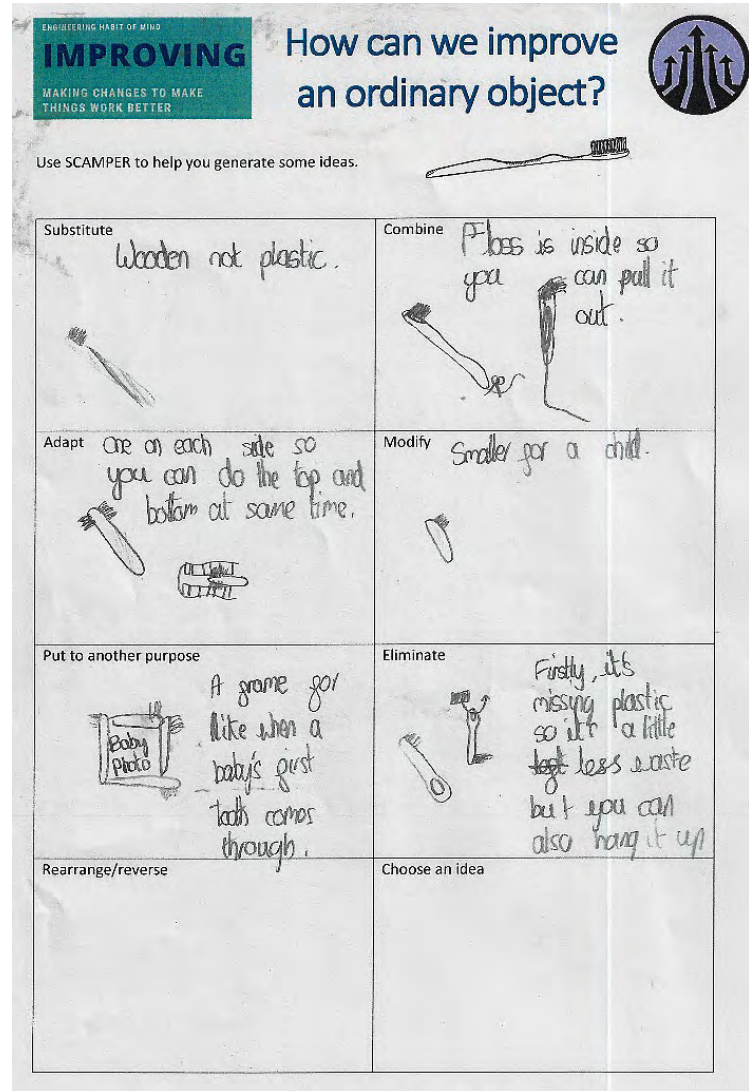 ENGINEERING HABIT OF MIND
IMPROVING
MAKING CHANGES TO MAKE
THINGS WORK BETTER
How can we improve
an ordinary object?
Use SCAMPER to help you generate some ideas.
Substitute
Wooden not plastic.
Combine
Floss is inside so
you can pull it
out.
Adapt
one on each side so
you can do the top and
bottom at same time.
Modify
Smaller for a child.
Put to another purpose
A frame for
like when a
baby's first
tooth comes
through.
Baby
Photo
Eliminate
Firstly, it's
missing plastic
so it's a little
less waste
but you can
also hang it up
Rearrange/reverse
Choose an idea